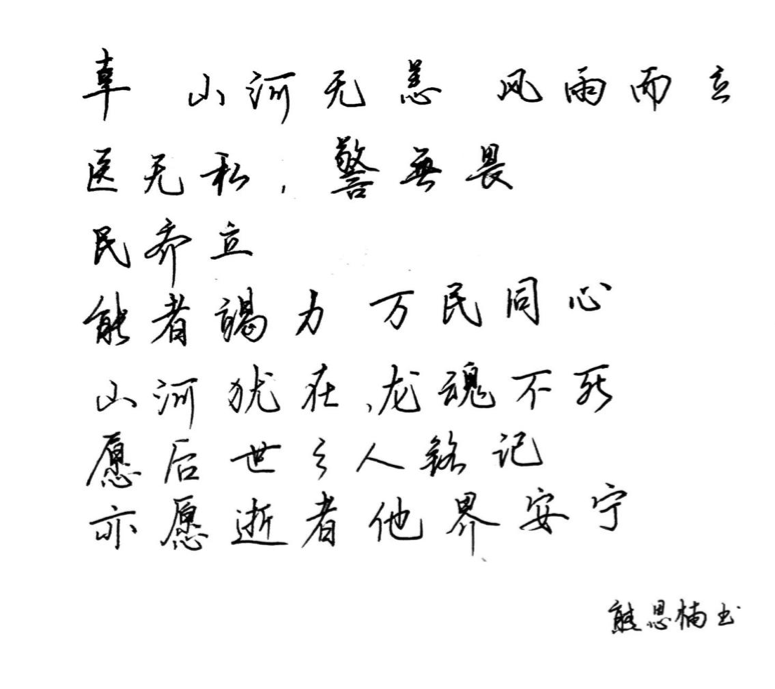 幸 山河无恙 风雨而立
医无私，警無畏
民齐立
能者竭力 万民同心
山河犹在、龙魂不死
愿后世之人铭记
亦愿逝者他界安宁
熊思楠书